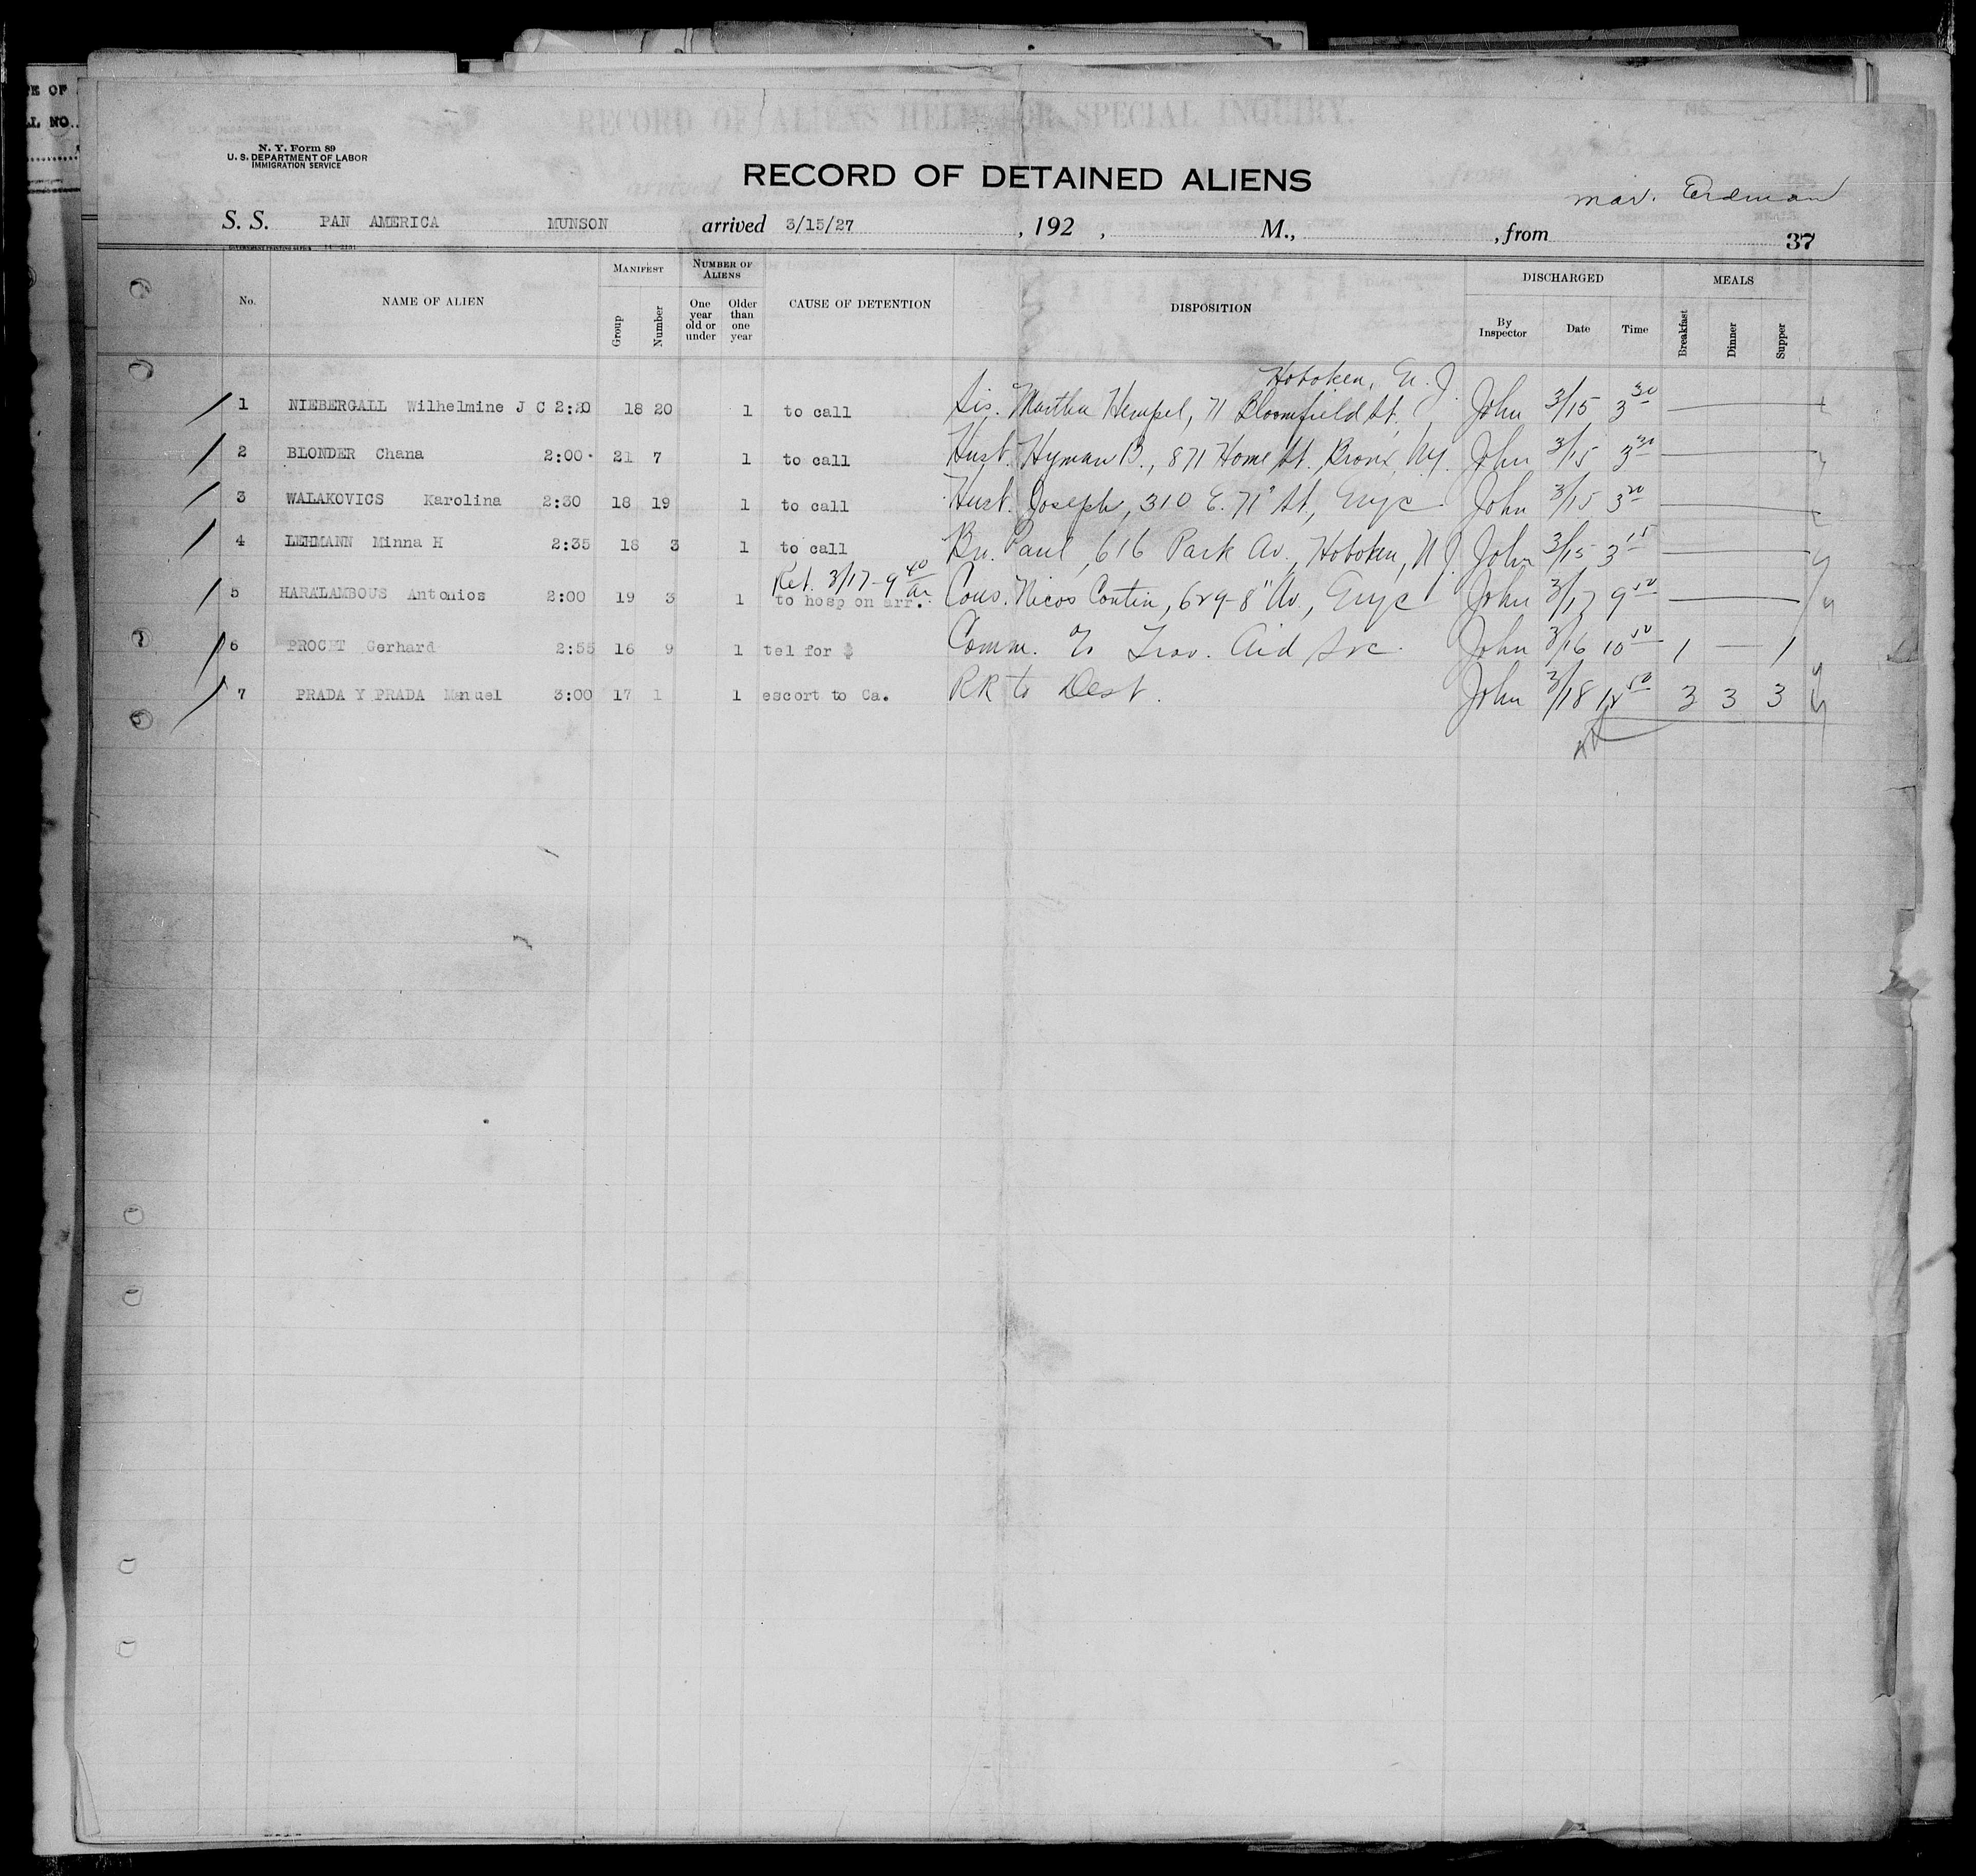 TE OF
LL NO.
RECORD OF ALIENS HELD FOR SPECIAL INQUIRY.
N. Y. Form 89
U. S. DEPARTMENT OF LABOR
IMMIGRATION SERVICE
RECORD OF DETAINED ALIENS
Erdman
S. S. PAN AMERICA MUNSON arrived 3/15/27, 192 , M., , from 37
No. NAME OF ALIEN MANIFEST Group Number NUMBER OF ALIENS One year old or under Older than one year CAUSE OF DETENTION DISPOSITION DISCHARGED By Inspector Date Time MEALS Breakfast Dinner Supper
Hoboken, N. J.
1 NIEBERGALL Wilhelmine J C 2:20 18 20 1 to call Sis. Martha Hempel, 71 Bloomfield St. John 3/15 3 30
2 BLONDER Chana 2:00 21 7 1 to call Husb. Hyman B., 871 Home St. Bronx, NY. John 3/15 3 30
3 WALAKOVICS Karolina 2:30 18 19 1 to call Husb. Joseph, 310 E. 71" St., John 3/15 3 20
4 LEHMANN Minna H 2:35 18 3 1 to call Bro. Paul, 616 Park Av., Hoboken, N J. John 3/15 3 15
Ret. 3/17-9 40
5 HARALAMBOUS Antonios 2:00 19 3 1 to hosp on arr. Cous. Nicos Contin, 629-8" Av., John 3/17 9 50
6 PROCET Gerhard 2:55 16 9 1 tel for $ Comm. to Trav. Aid Soc. John 3/16 10 50 1 — 1
7 PRADA Y PRADA Manuel 3:00 17 1 1 escort to Ca. RR to Dest. John 3/18 12 50 3 3 3